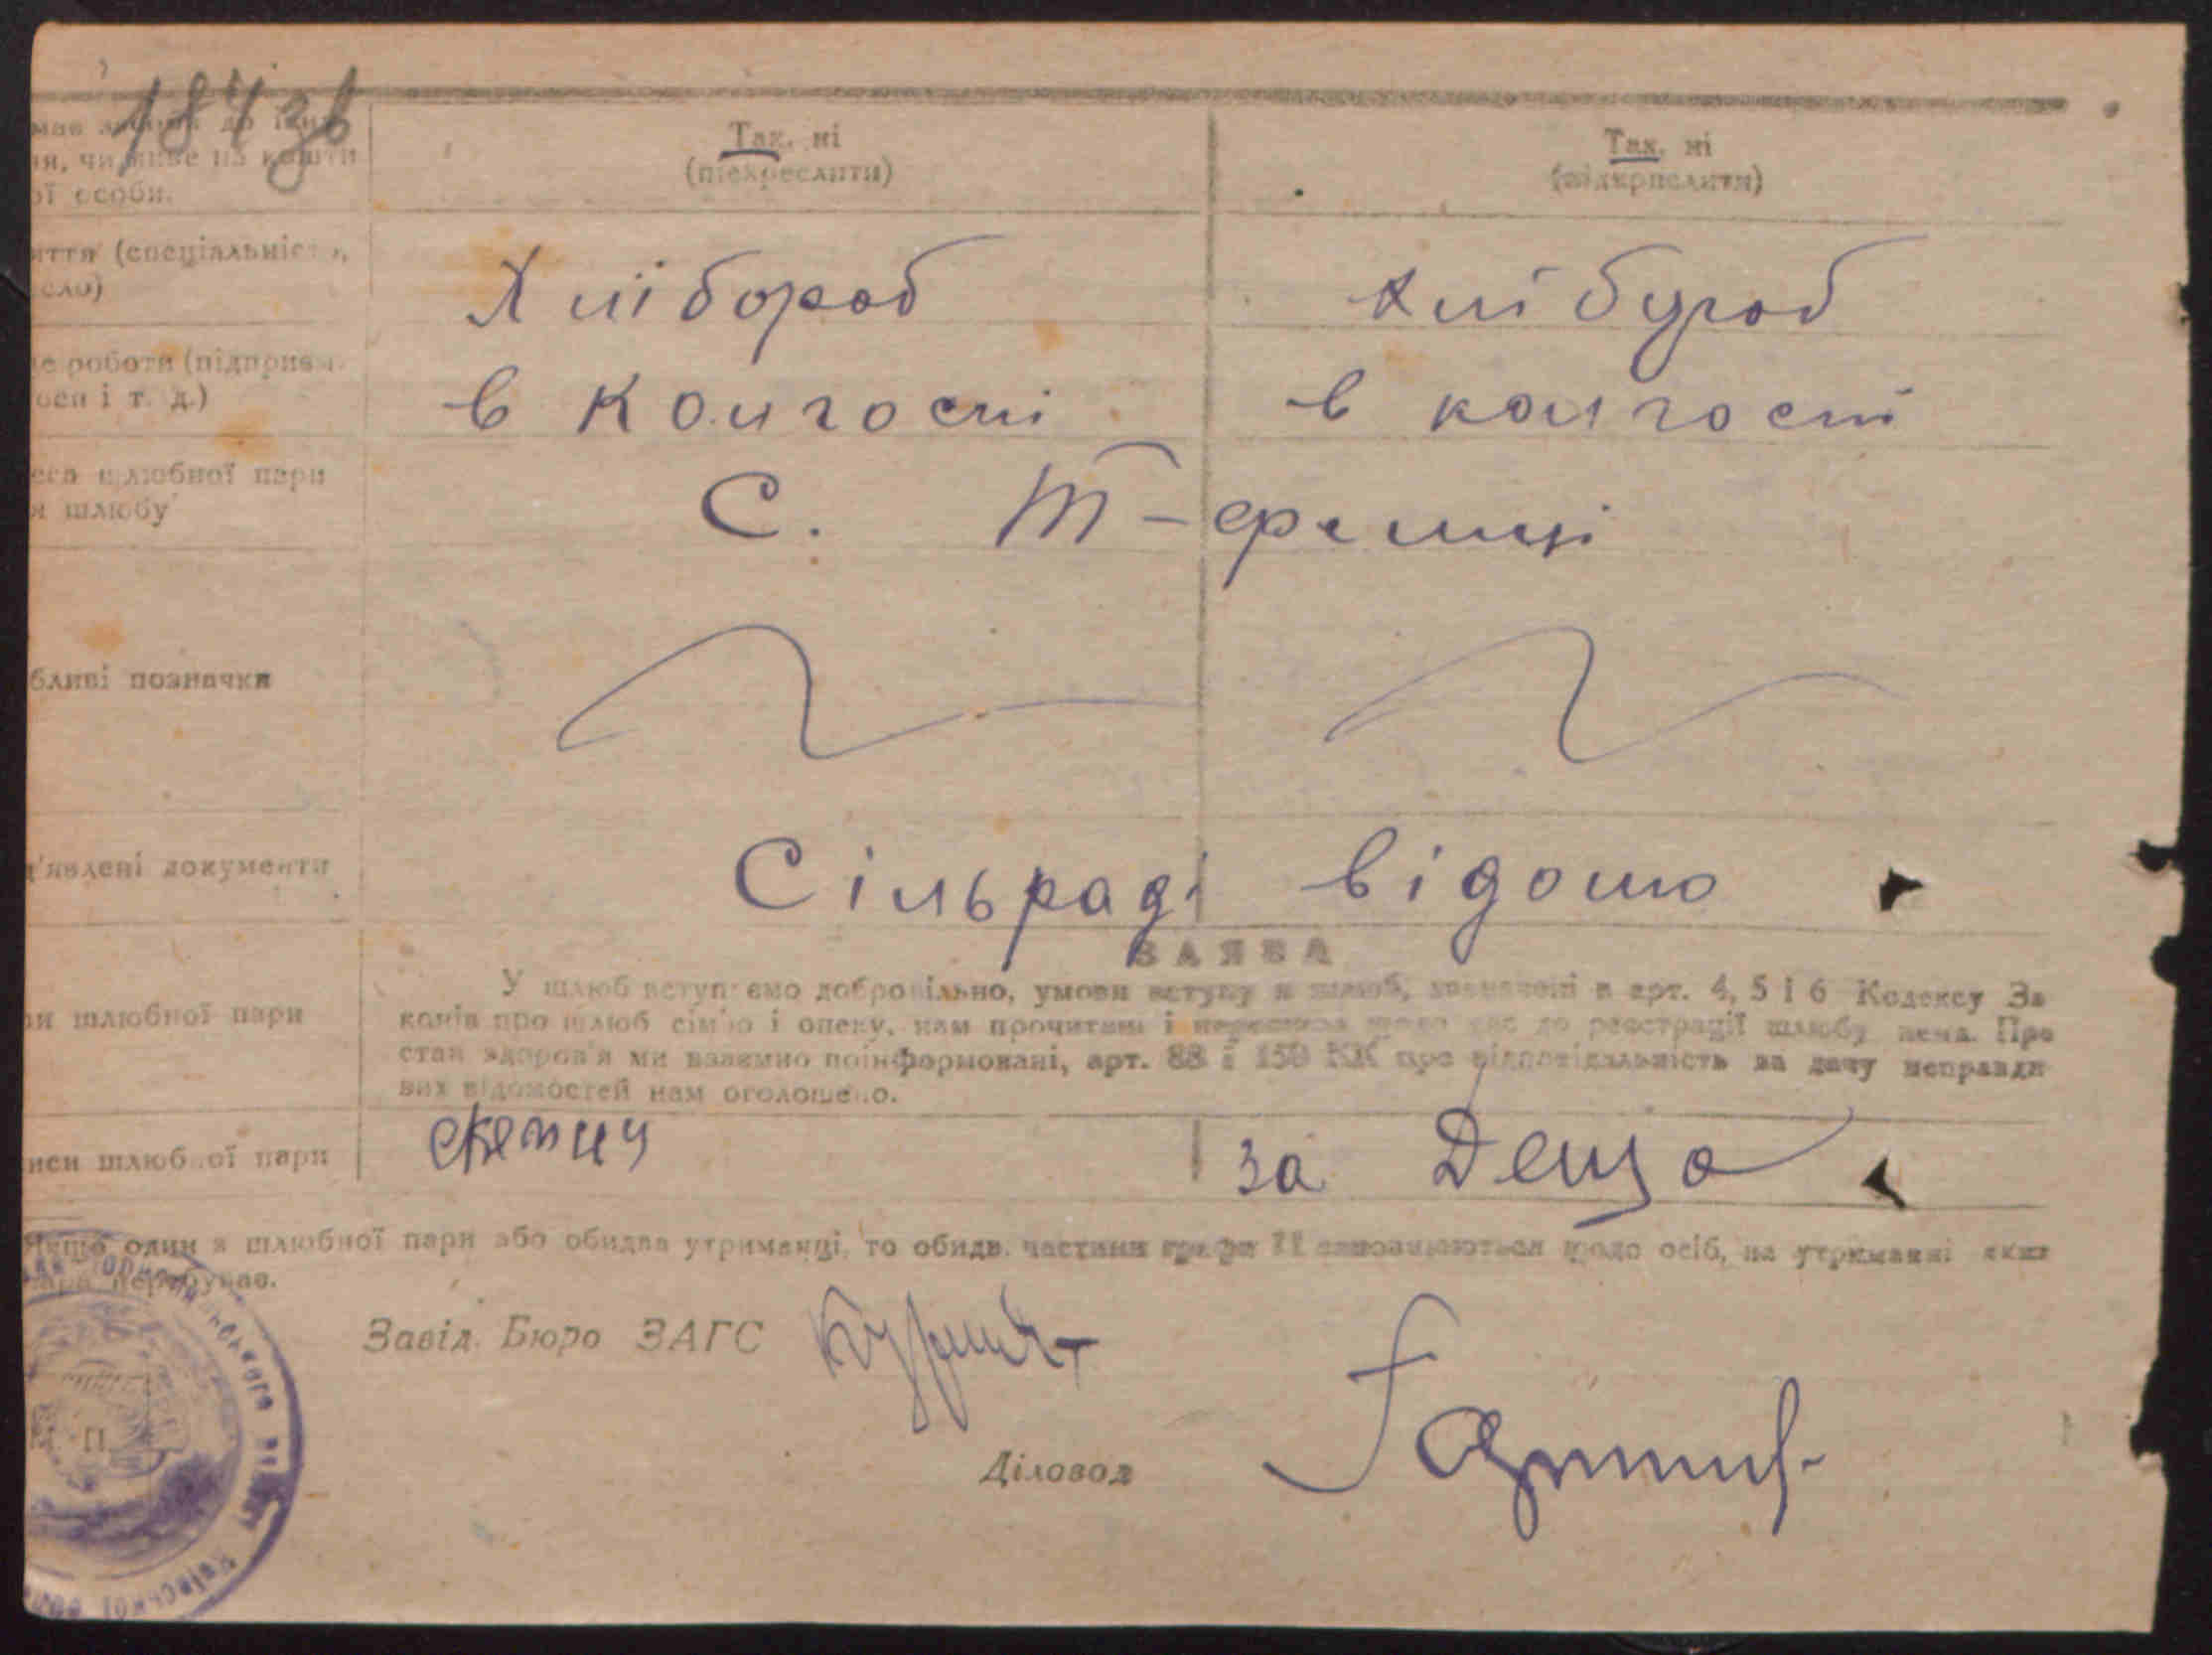 187 зв
має
ня, чи живе на кошти
ої особи.
Так, ні
(підкреслити)
Так, ні
(підкреслити)
иття (спеціальність,
есло)
Хлібороб
Хлібуроб
це роботи (підприєм-
осп і т. д.)
в Колгоспі
в колгоспі
еса шлюбної пари
я шлюбу
С.
бливі позначки
д'явлені документи
Сільраді відомо
ЗАЯВА
ви шлюбної пари
У шлюб вступаємо добровільно, умови вступу в шлюб, зазначені в арт. 4, 5 і 6 Кодексу За
конів про шлюб сім'ю і опеку, нам прочитані і перешкод щодо нас до реєстрації шлюбу нема. Про
стан здоров'я ми взаємно поінформовані, арт. 88 і 150 КК про відповідальність за дачу неправди
вих відомостей нам оголошено.
иси шлюбної пари
за Деща
Якщо один з шлюбної пари або обидва утриманці, то обидві частини графи 11 заповнюються щодо осіб, на утриманні яких
пара перебуває.
Завід. Бюро ЗАГС
М. П.
Діловод
Київської